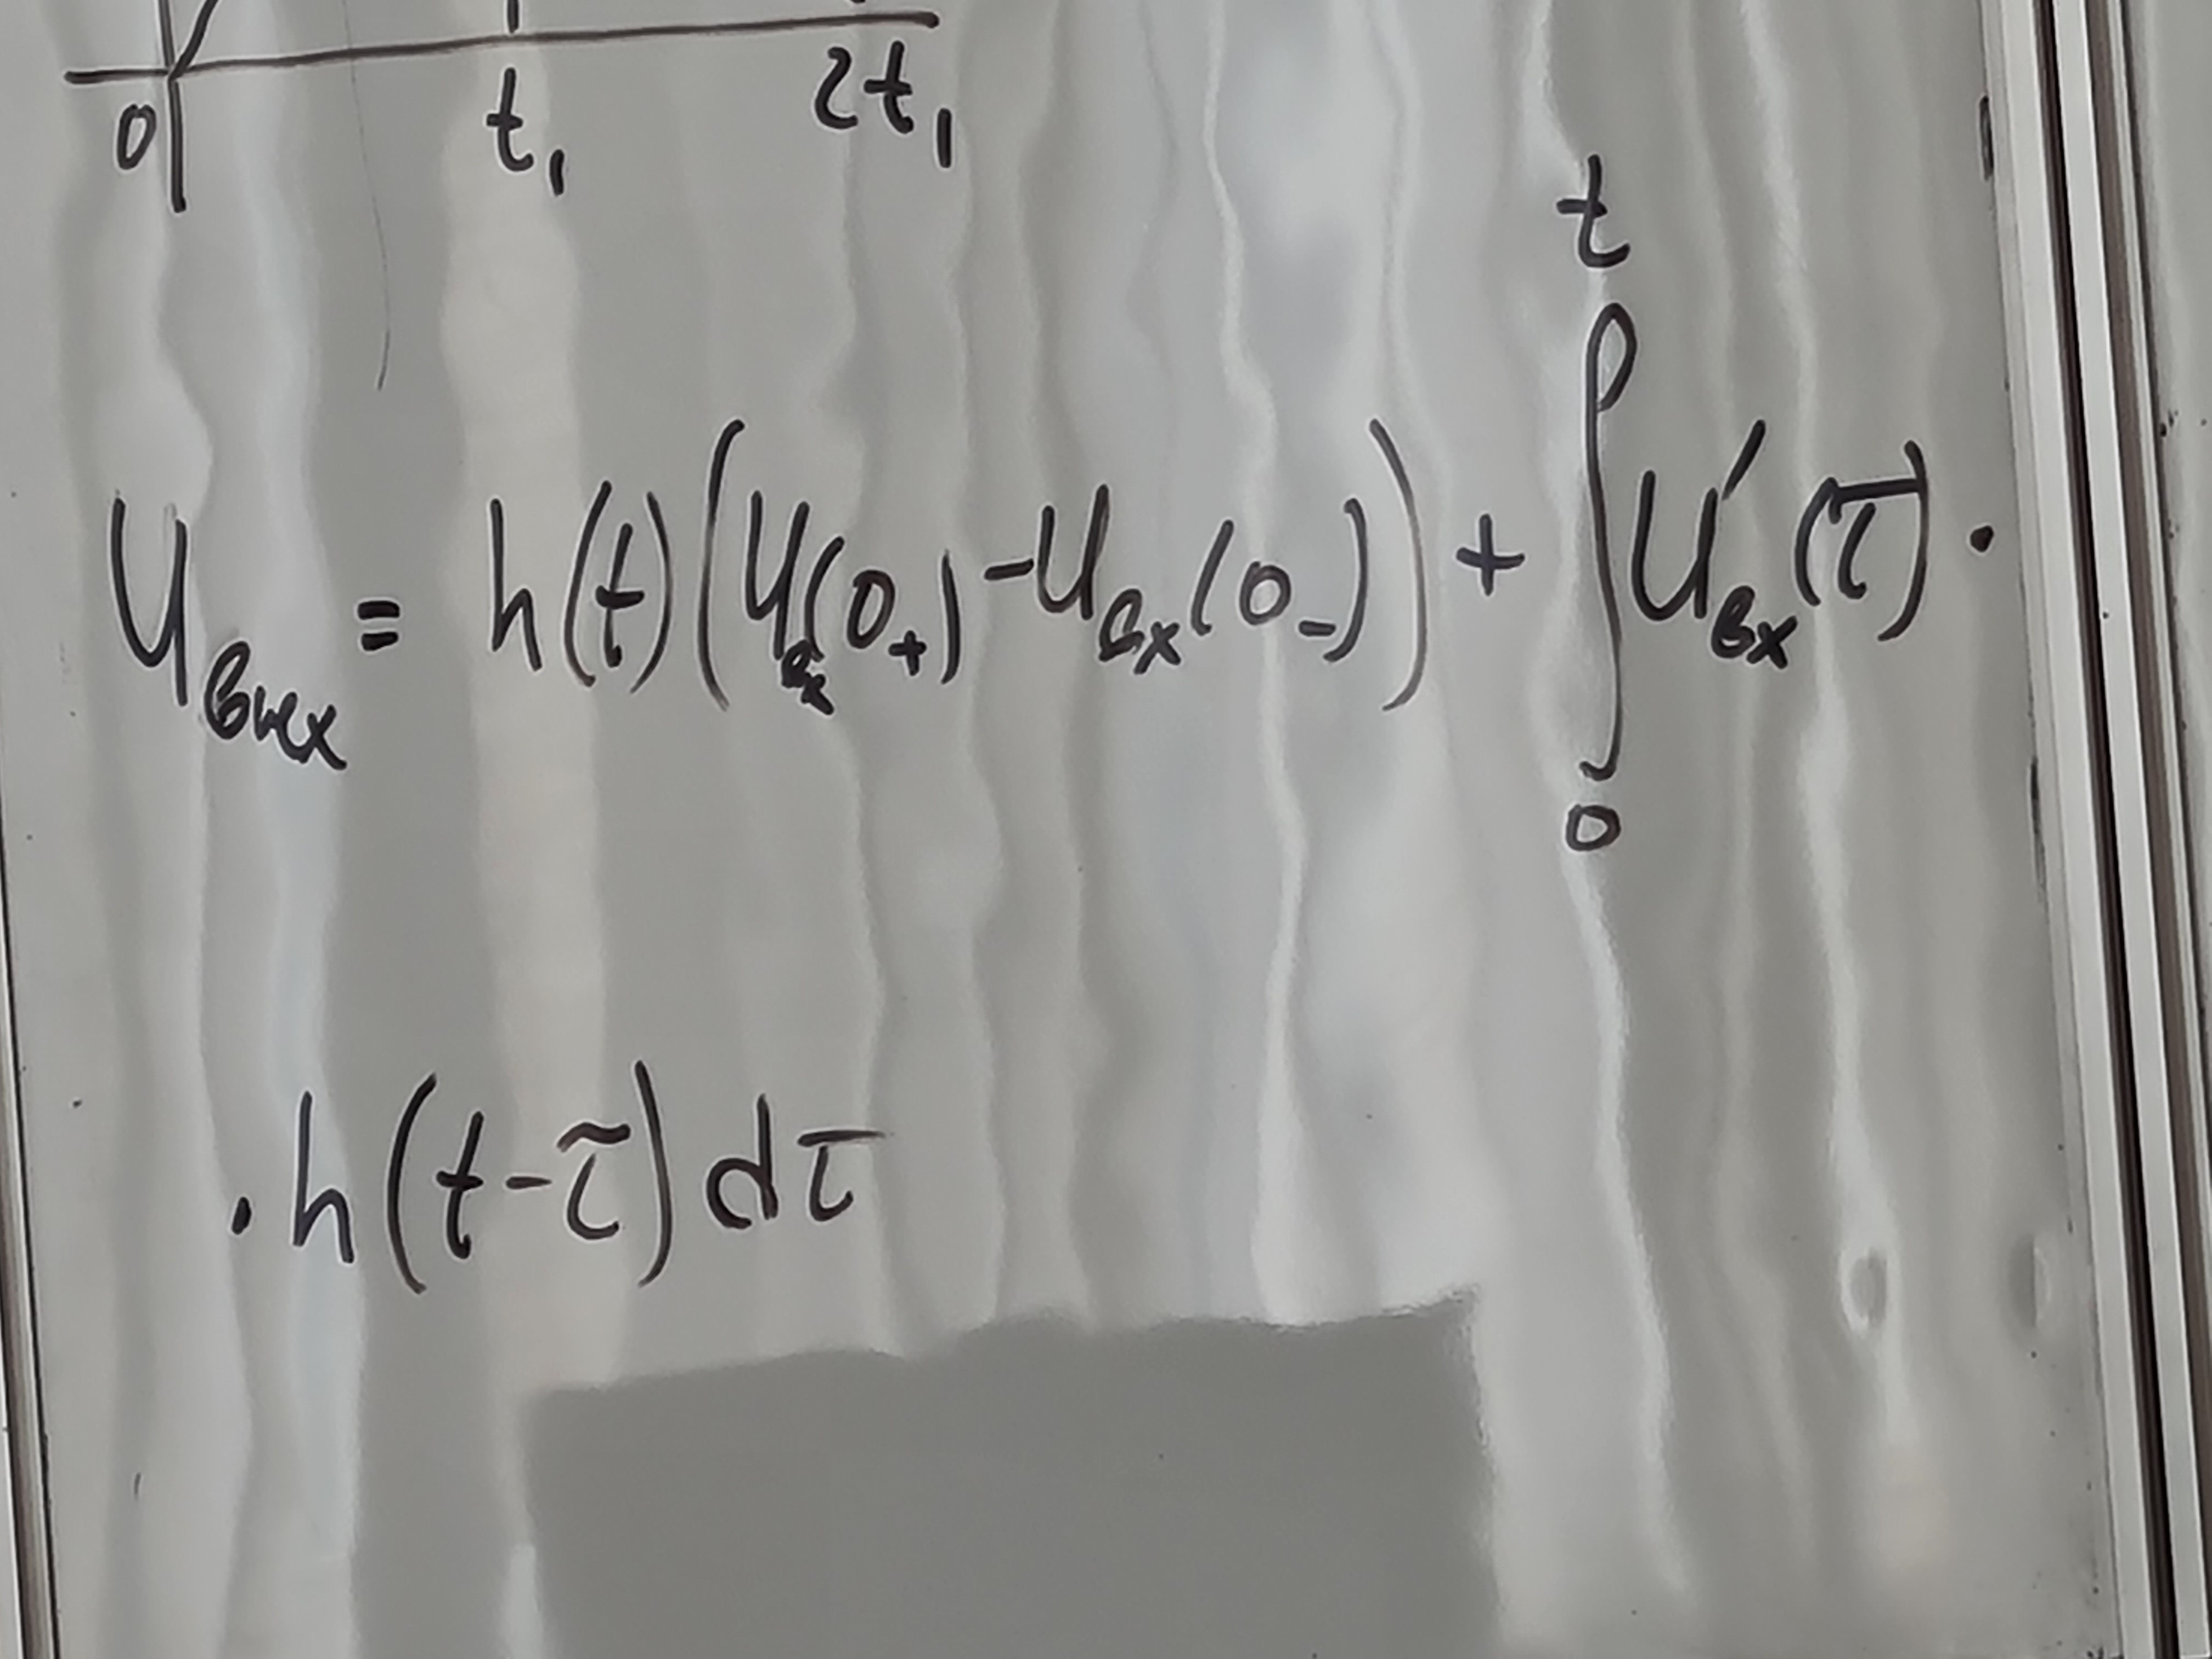 0 t₁ 2t₁
U_вых = h(t)(U_вх(0₊) - U_вх(0₋)) + ∫₀ᵗ U'_вх(τ) ·
· h(t-τ)dτ